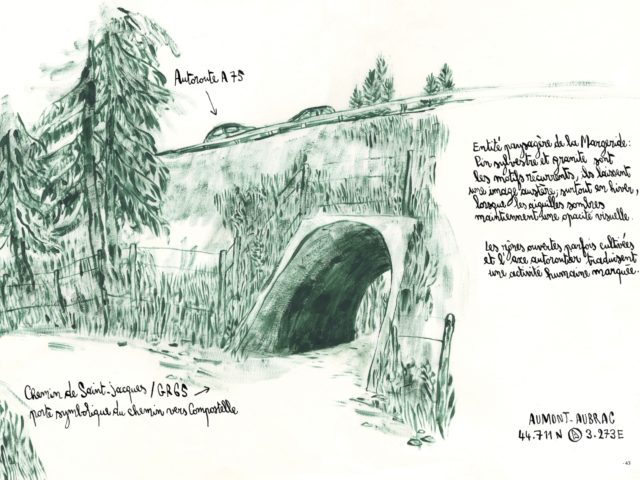 Autoroute A 75
Entité paysagère de la Margeride:
Pin sylvestre et granite sont
les motifs récurrents, ils laissent
une image austère, surtout en hiver,
lorsque les aiguilles sombres
maintiennent une opacité visuelle.
Les rères ouvertes parfois cultivées
et l'axe autoroutier traduisent
une activité humaine marquée.
Chemin de Saint-Jacques / GR65
porte symbolique du chemin vers Compostelle
AUMONT-AUBRAC
44.711 N 3.273 E
-43